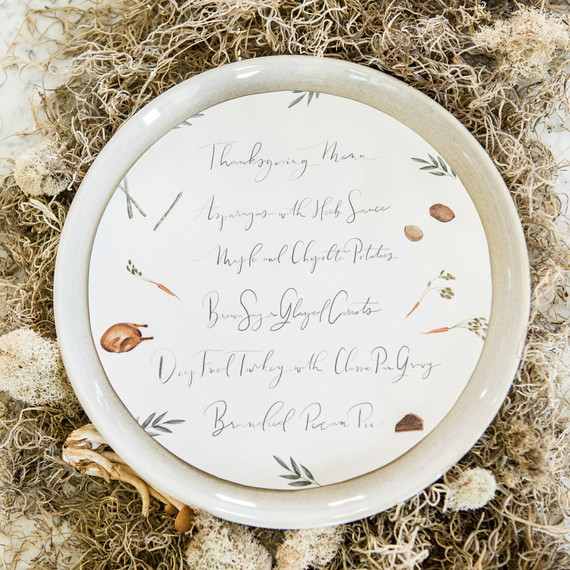 Thanksgiving Menu
Asparagus with Herb Sauce
Maple and Chipotle Potatoes
Brown Sugar Glazed Carrots
Deep Fried Turkey with Classic Pan Gravy
Brandied Pecan Pie